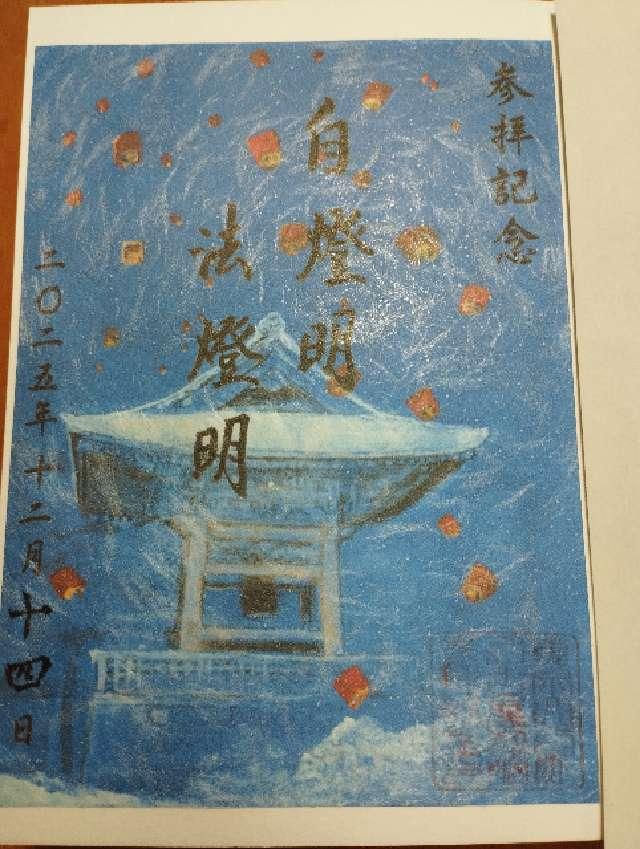 参拝記念
白燈明
法燈明
二〇二五年十二月十四日